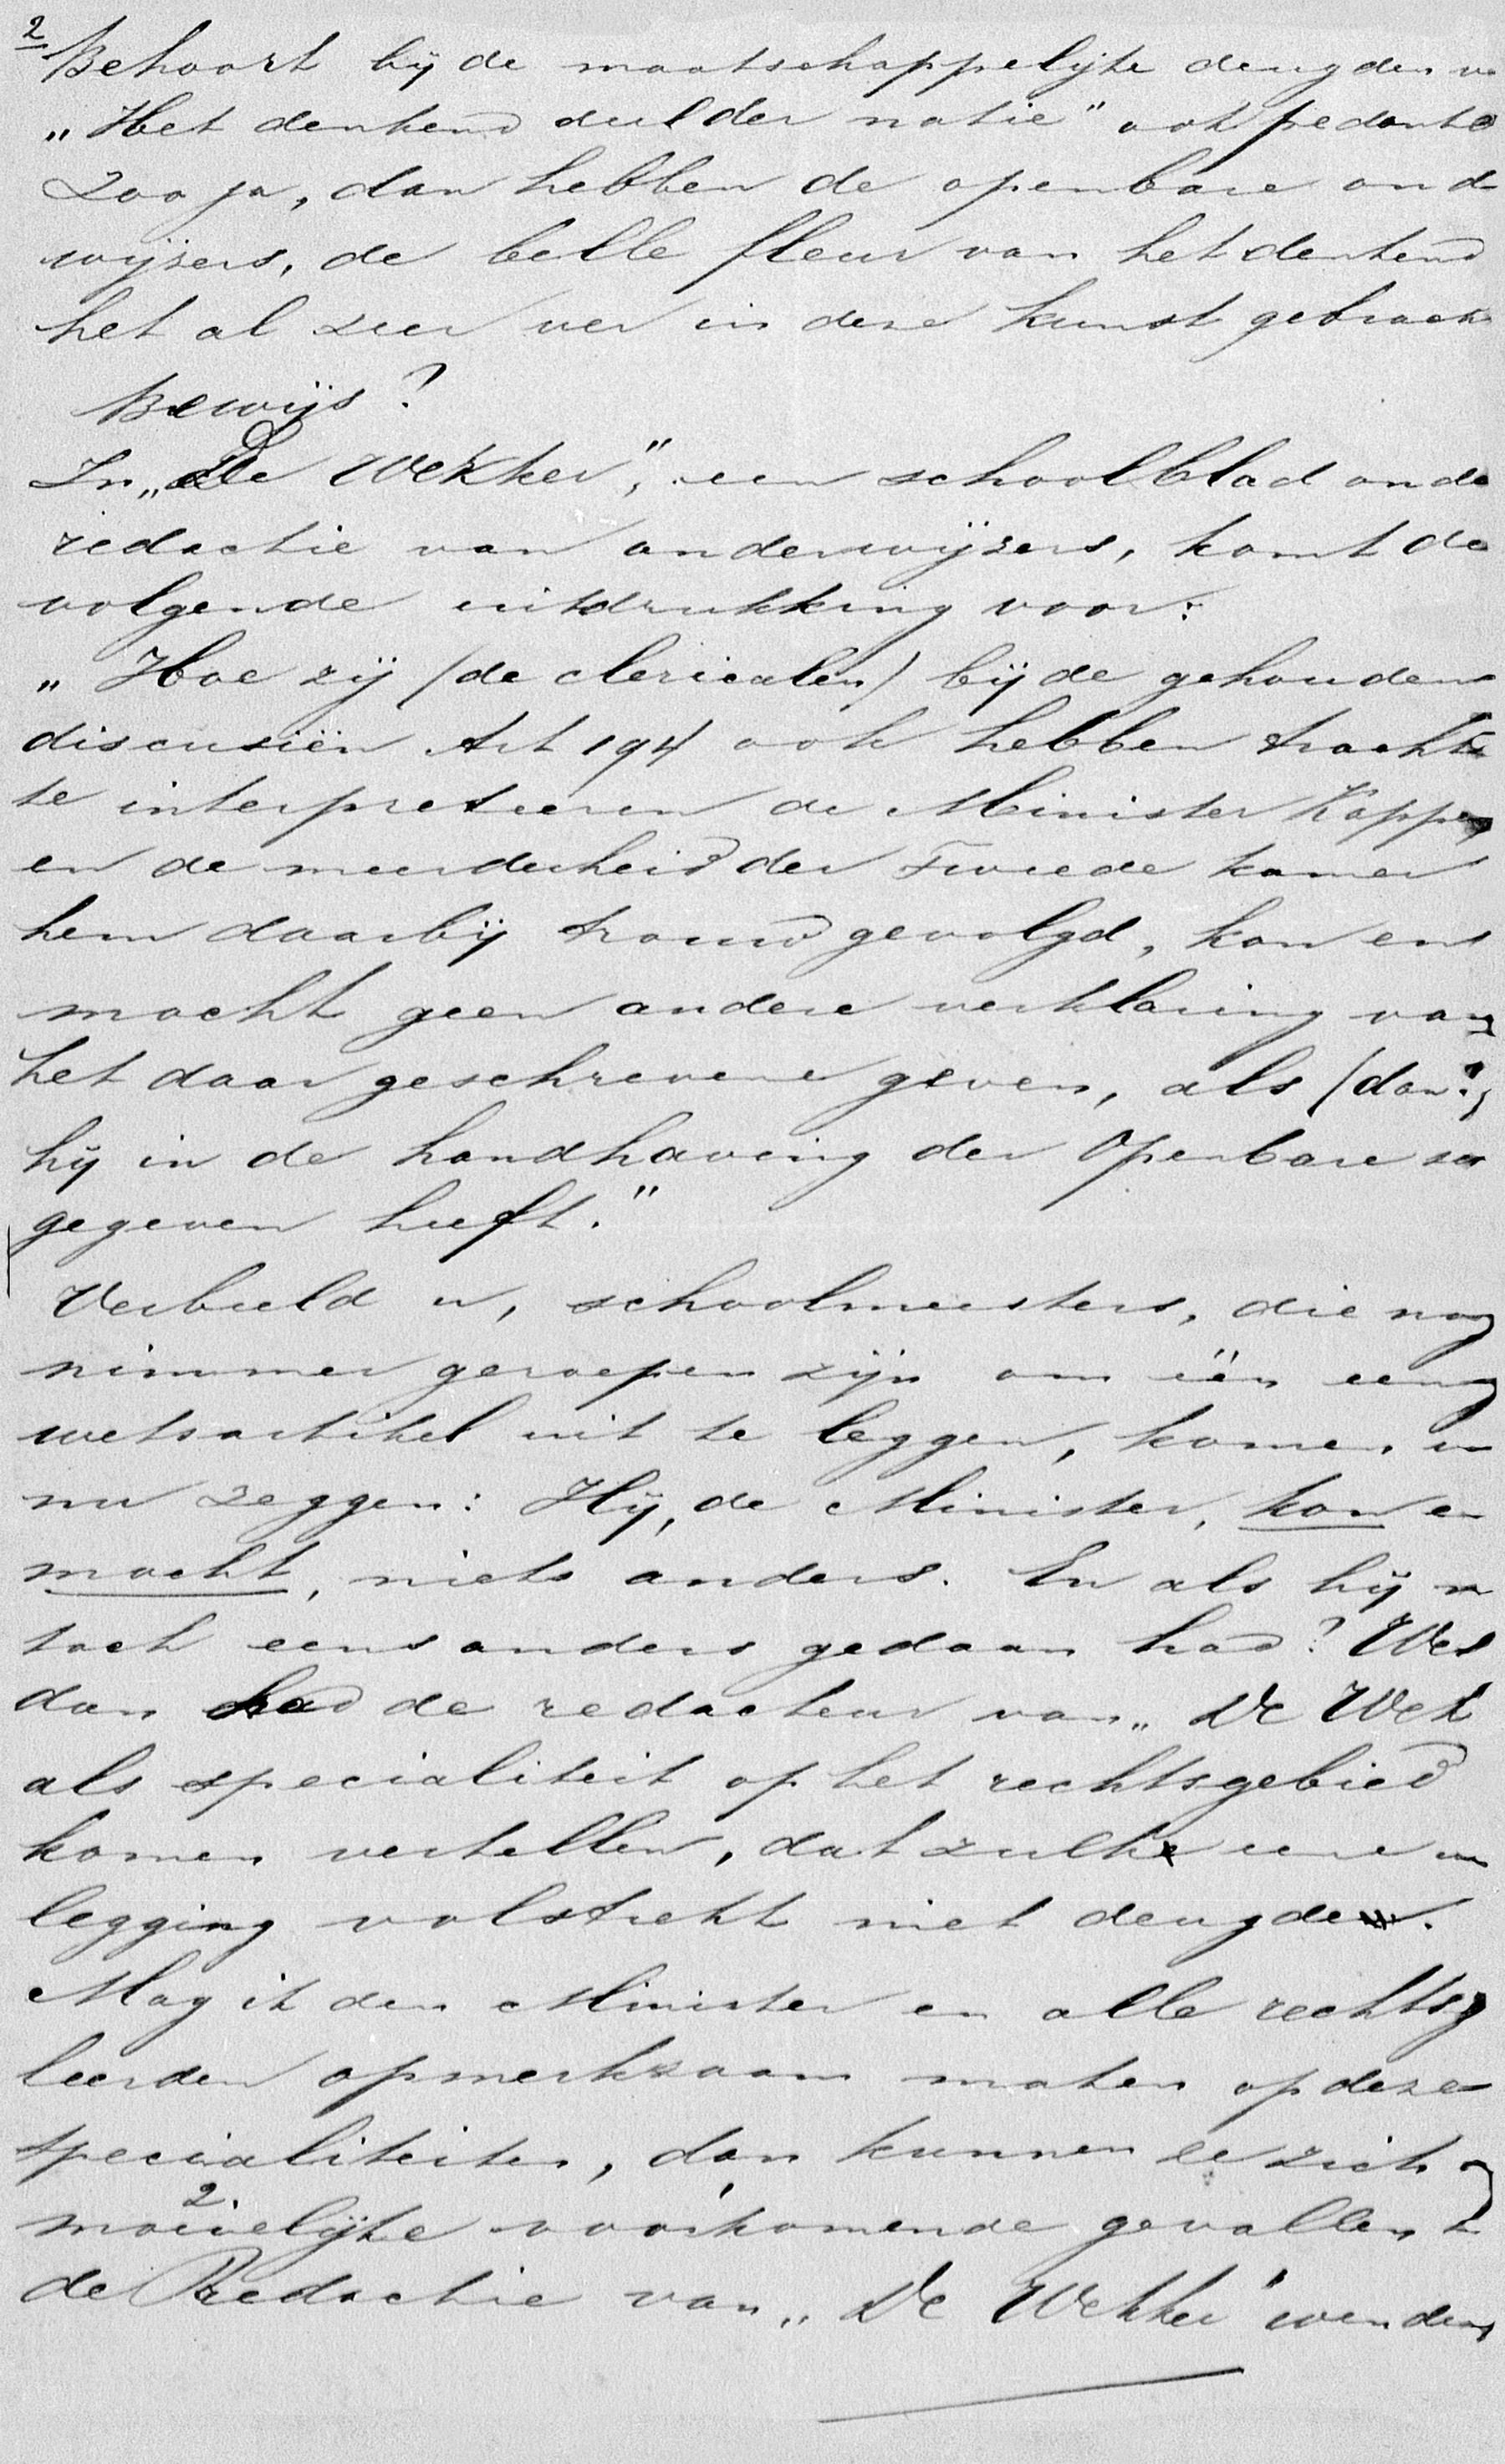 2
Behoort bij de maatschappelijke deugden v
„Het denkend deel der natie" ook pedante
Zoo ja, dan hebben de openbare ond
wijzers, de belle fleur van het denkend
het al zeer ver in deze kunst gebrach
Bewijs?
In „De Wekker", een schoolblad onde
redactie van onderwijzers, komt de
volgende uitdrukking voor:
„Hoe zij (de clericalen) bij de gehouden
discusiën Art 194 ook hebben tracht
te interpreteeren de Minister Kappey
en de meerderheid der Tweede kamer
hem daarbij trouw gevolgd, kon en
mocht geen andere verklaring van
het daar geschrevene geven, als (dan?)
hij in de handhaving der Openbare
gegeven heeft."
Verbeeld u, schoolmeesters, die nog
nimmer geroepen zijn om één eenig
wetsartikel uit te leggen, komen u
nu zeggen: Hij, de Minister, kon en
mocht, niets anders. En als hij n
toch eens anders gedaan had? Wel
dan had de redacteur van „De Wek
als specialiteit op het rechtsgebied
komen vertellen, dat zulk eene
legging volstrekt niet deugde.
Mag ik den Minister en alle rechtsg
leerden opmerkzaam maken op deze
specialiteiten, dan kunnen ze zich
moeielijke voorkomende gevallen t
de Redactie van „De Wekker" wenden